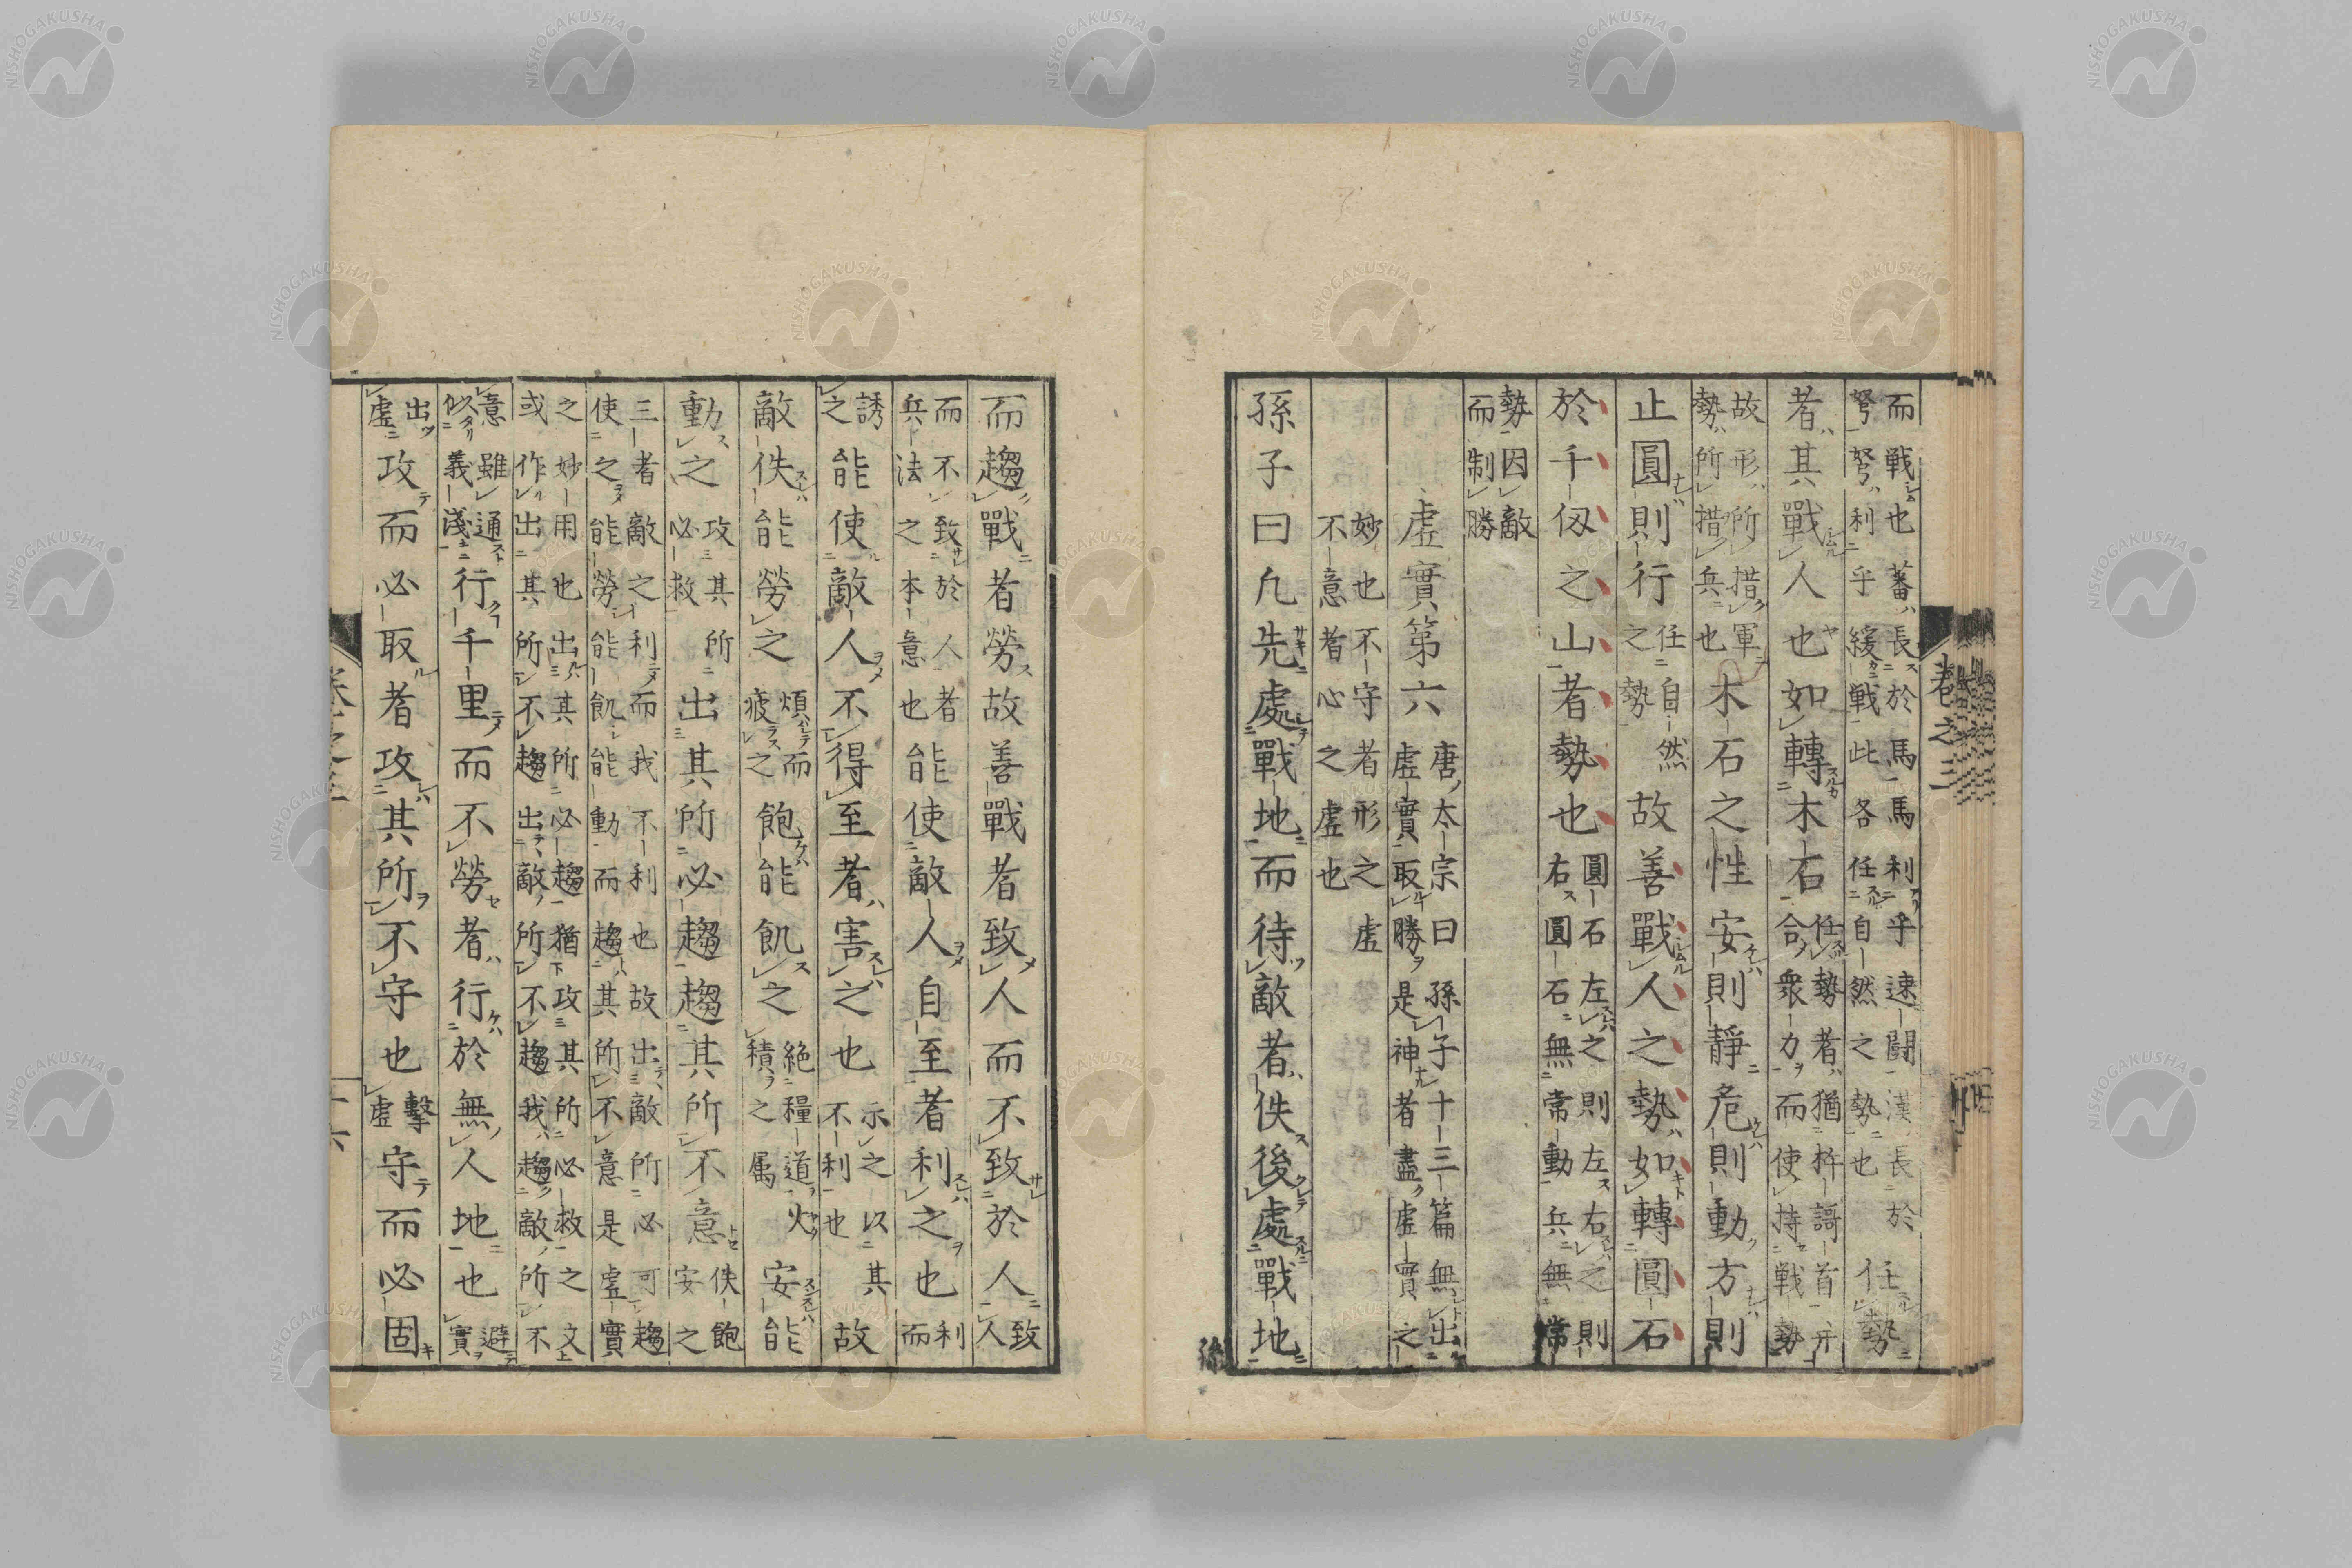 卷之三
而戰也蕃長於馬馬利乎速闘漢長於弩弩利乎緩戰此各任自然之勢也任勢
者其戰人也如轉木石任勢者猶杵謌首并合衆力而使持戰勢
故形所措軍勢所措兵也木石之性安則靜危則動方則
止圓則行任自然之勢故善戰人之勢如轉圓石
於千仭之山者勢也圓石左之則左右之則右圓石無常動兵無常
勢因敵而制勝
虛實第六唐太宗曰孫子十三篇無出虛實取勝是神者盡虛實之
妙也不守者形之虛不意者心之虛也
孫子曰凢先處戰地而待敵者佚後處戰地
而趨戰者勞故善戰者致人而不致於人致人
而不致於人者兵法之本意也能使敵人自至者利之也利而
誘之能使敵人不得至者害之也示之以其不利也故
敵佚能勞之煩而疲之飽能飢之絶糧道火積之属安能
動之攻其所必救出其所必趨趨其所不意佚飽安之
三者敵之利而我不利也故出敵所必可趨使之能勞能飢能動而趨其所不意是虛實
之妙用也出其所必趨猶攻其所必救之文或作出其所不趨出敵所不趨我趨敵所不
意雖通似義淺行千里而不勞者行於無人地也避實
出虛攻而必取者攻其所不守也擊虛守而必固